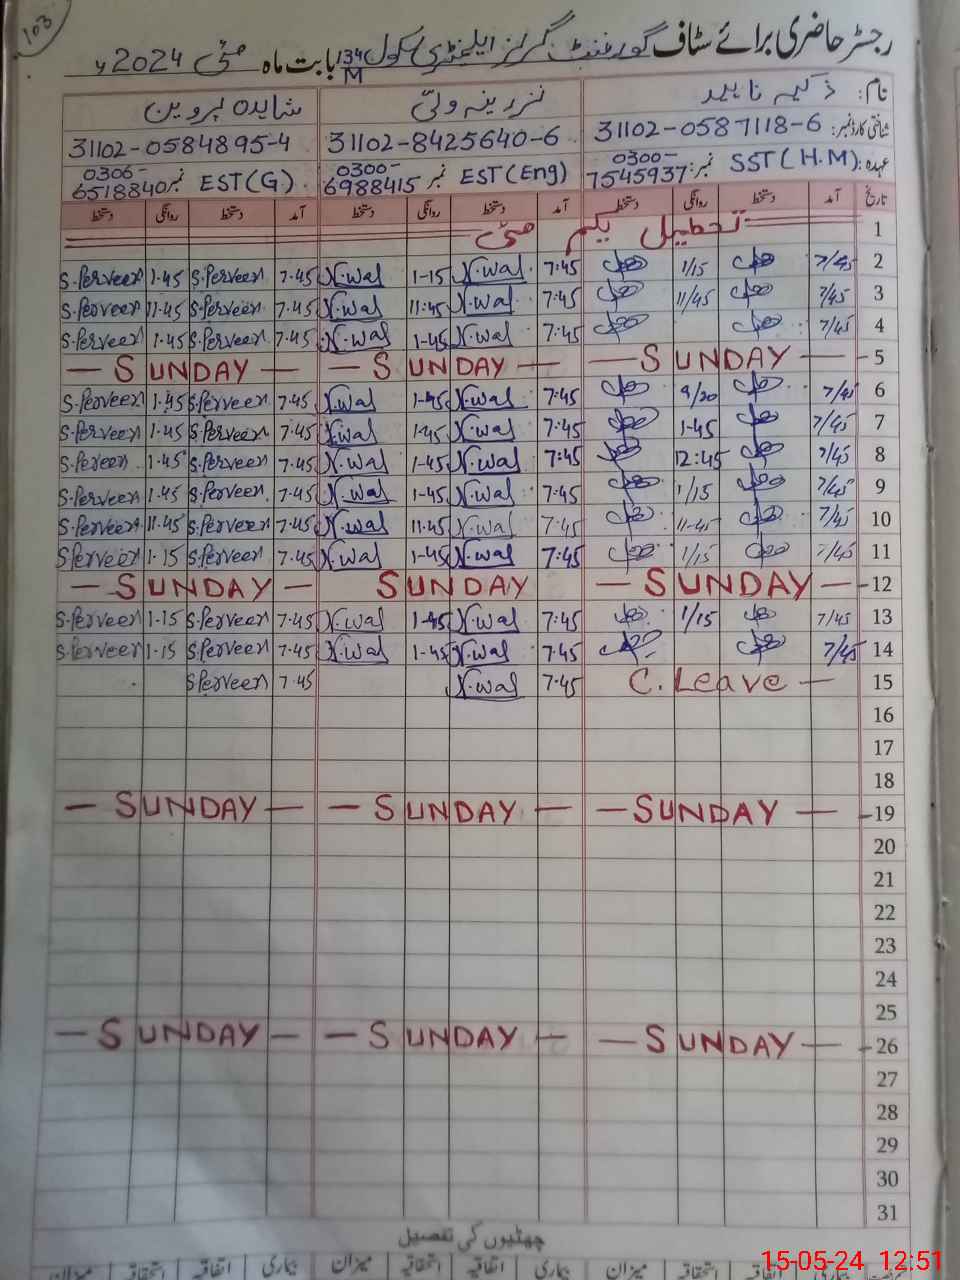 103
رجسٹر حاضری برائے سٹاف گورنمنٹ گرلز ایلیمنٹری سکول 134/M بابت ماہ مئی 2024ء
نام: ذکیہ ناہید زرینہ ولی شاہدہ پروین
شناختی کارڈ نمبر: 31102-0587118-6 31102-8425640-6 31102-0584895-4
عہدہ: SST(H.M) نمبر: 0300-7545937 EST(Eng) نمبر 0300-6988415 EST(G) نمبر 0306-6518840
تاریخ آمد دستخط روانگی دستخط آمد دستخط روانگی دستخط آمد دستخط روانگی دستخط
1 تعطیل یکم مئی
2 7/45 1/15 7:45 N.wal 1-15 N.wal 7-45 S.Perveen 1-45 S.Perveen
3 7/45 11/45 7:45 N.wal 11:45 N.wal 7-45 S.Perveen 11-45 S.Perveen
4 7/45 7:45 N.wal 1-45 N.wal 7-45 S.Perveen 1-45 S.Perveen
5 — SUNDAY — — SUNDAY — — SUNDAY —
6 7/45 9/20 7:45 N.wal 1-45 N.wal 7-45 S.Perveen 1-45 S.Perveen
7 7/45 1-45 7:45 N.wal 1-45 N.wal 7-45 S.Perveen 1-45 S.Perveen
8 7/45 12:45 7:45 N.wal 1-45 N.wal 7-45 S.Perveen 1-45 S.Perveen
9 7/45 1/15 7:45 N.wal 1-45 N.wal 7-45 S.Perveen 1-45 S.Perveen
10 7/45 11-45 7:45 N.wal 11:45 N.wal 7-45 S.Perveen 11-45 S.Perveen
11 7/45 1/15 7:45 N.wal 1-45 N.wal 7-45 S.Perveen 1-15 S.Perveen
12 — SUNDAY — SUNDAY — SUNDAY —
13 7/45 1/15 7:45 N.wal 1-45 N.wal 7-45 S.Perveen 1-15 S.Perveen
14 7/45 7-45 N.wal 1-45 N.wal 7-45 S.Perveen 1-15 S.Perveen
15 C. Leave — 7-45 N.wal 7-45 S.Perveen
16
17
18
19 — SUNDAY — — SUNDAY — — SUNDAY —
20
21
22
23
24
25
26 — SUNDAY — — SUNDAY — — SUNDAY —
27
28
29
30
31
چھٹیوں کی تفصیل
بیماری اتفاقیہ استحقاقیہ میزان بیماری اتفاقیہ استحقاقیہ میزان بیماری اتفاقیہ استحقاقیہ میزان
15-05-24 12:51